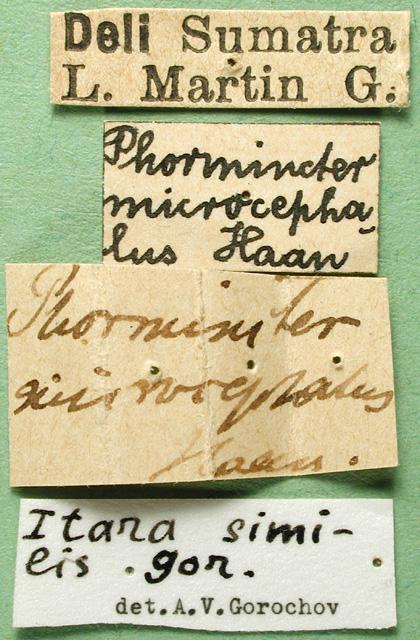 Deli Sumatra
L. Martin G.
Phormincter
microcepha-
lus Haan
Phormincter
microcephalus
Haan.
Itara simi-
lis . gor.
det. A. V. Gorochov